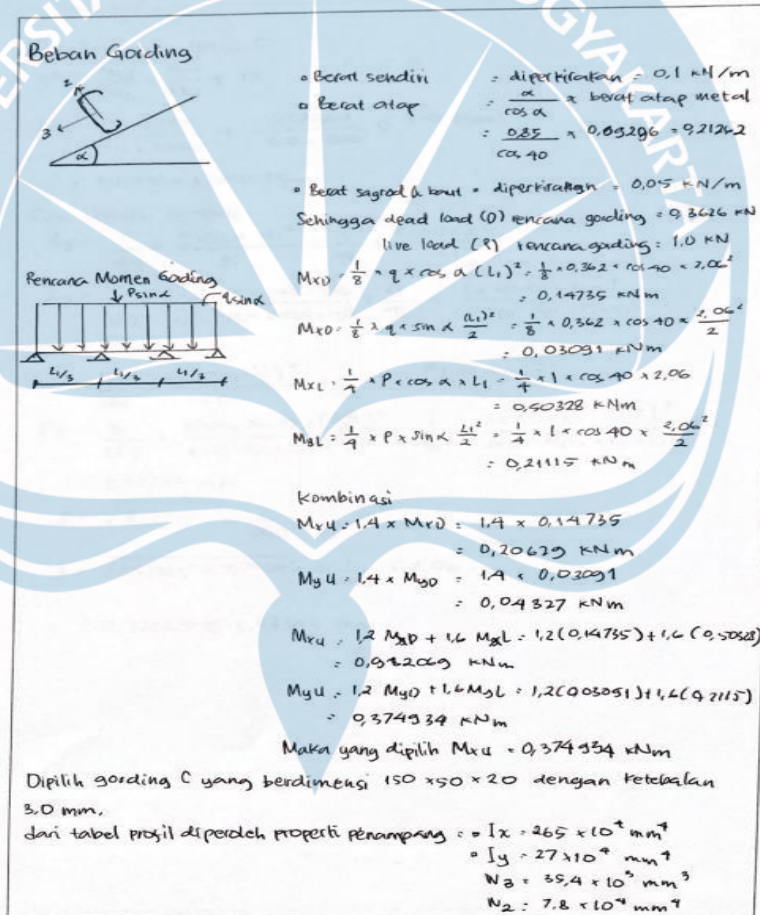 Beban Gording
• Berat sendiri = diperkirakan = 0,1 kN/m
• Berat atap = α/cos α × berat atap metal
= 0,85/cos 40 × 0,09296 = 0,21262
• Berat sagrod & baut = diperkirakan = 0,05 kN/m
Sehingga dead load (D) rencana gording = 0,3626 kN
live load (P) rencana gading = 1.0 kN
2
3
α
Rencana Momen Gording
P sin α
q sin α
L1/3 L1/3 L1/3
MxD = 1/8 × q × cos α (L1)² = 1/8 × 0,362 × cos 40 × 2,06²
= 0,14735 kNm
MxD = 1/8 × q × sin α (L1)²/2 = 1/8 × 0,362 × cos 40 × 2,06²/2
= 0,03091 kNm
MxL = 1/4 × P × cos α × L1 = 1/4 × 1 × cos 40 × 2,06
= 0,50328 kNm
MyL = 1/4 × P × sin α L1²/2 = 1/4 × 1 × cos 40 × 2,06²/2
= 0,21115 kNm
Kombinasi
Mxu = 1,4 × MxD = 1,4 × 0,14735
= 0,20629 kNm
Myu = 1,4 × MyD = 1,4 × 0,03091
= 0,04327 kNm
Mxu = 1,2 MxD + 1,6 MxL = 1,2(0,14735) + 1,6 (0,50328)
= 0,982069 kNm
Myu = 1,2 MyD + 1,6 MyL = 1,2(0,03091) + 1,6(0,2115)
= 0,374934 kNm
Maka yang dipilih Mxu = 0,374934 kNm
Dipilih gording C yang berdimensi 150 × 50 × 20 dengan ketebalan
3,0 mm.
dari tabel profil diperoleh properti penampang = • Ix = 265 × 10⁴ mm⁴
• Iy = 27 × 10⁴ mm⁴
W3 = 35,4 × 10³ mm³
W2 = 7.8 × 10⁴ mm⁴
OGYAKARTA